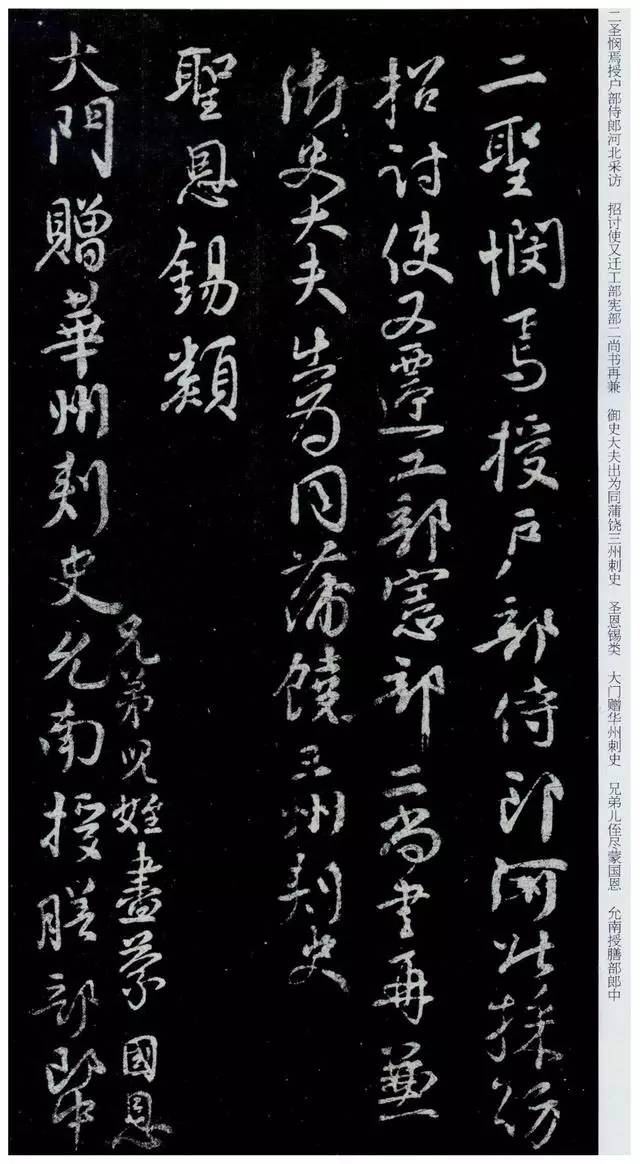 二聖憫焉授戶部侍郎河北採訪
招討使又遷工部憲部二尚書再兼
御史大夫出為同蒲饒三州刺史
聖恩錫類
大門贈華州刺史
兄弟兒姪盡蒙國恩
允南授膳部郎中
二圣悯焉授户部侍郎河北采访 招讨使又迁工部宪部二尚书再兼 御史大夫出为同蒲饶三州刺史 圣恩锡类 大门赠华州刺史 兄弟儿侄尽蒙国恩 允南授膳部郎中